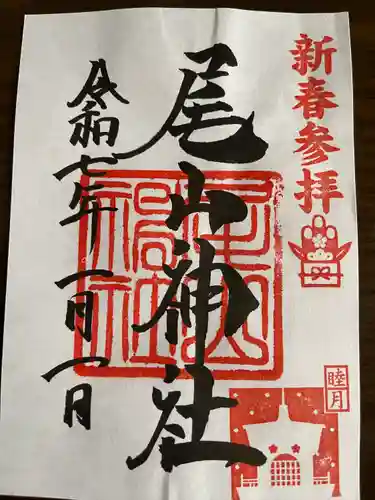 新春参拝
尾山神社
令和七年一月一日
睦月